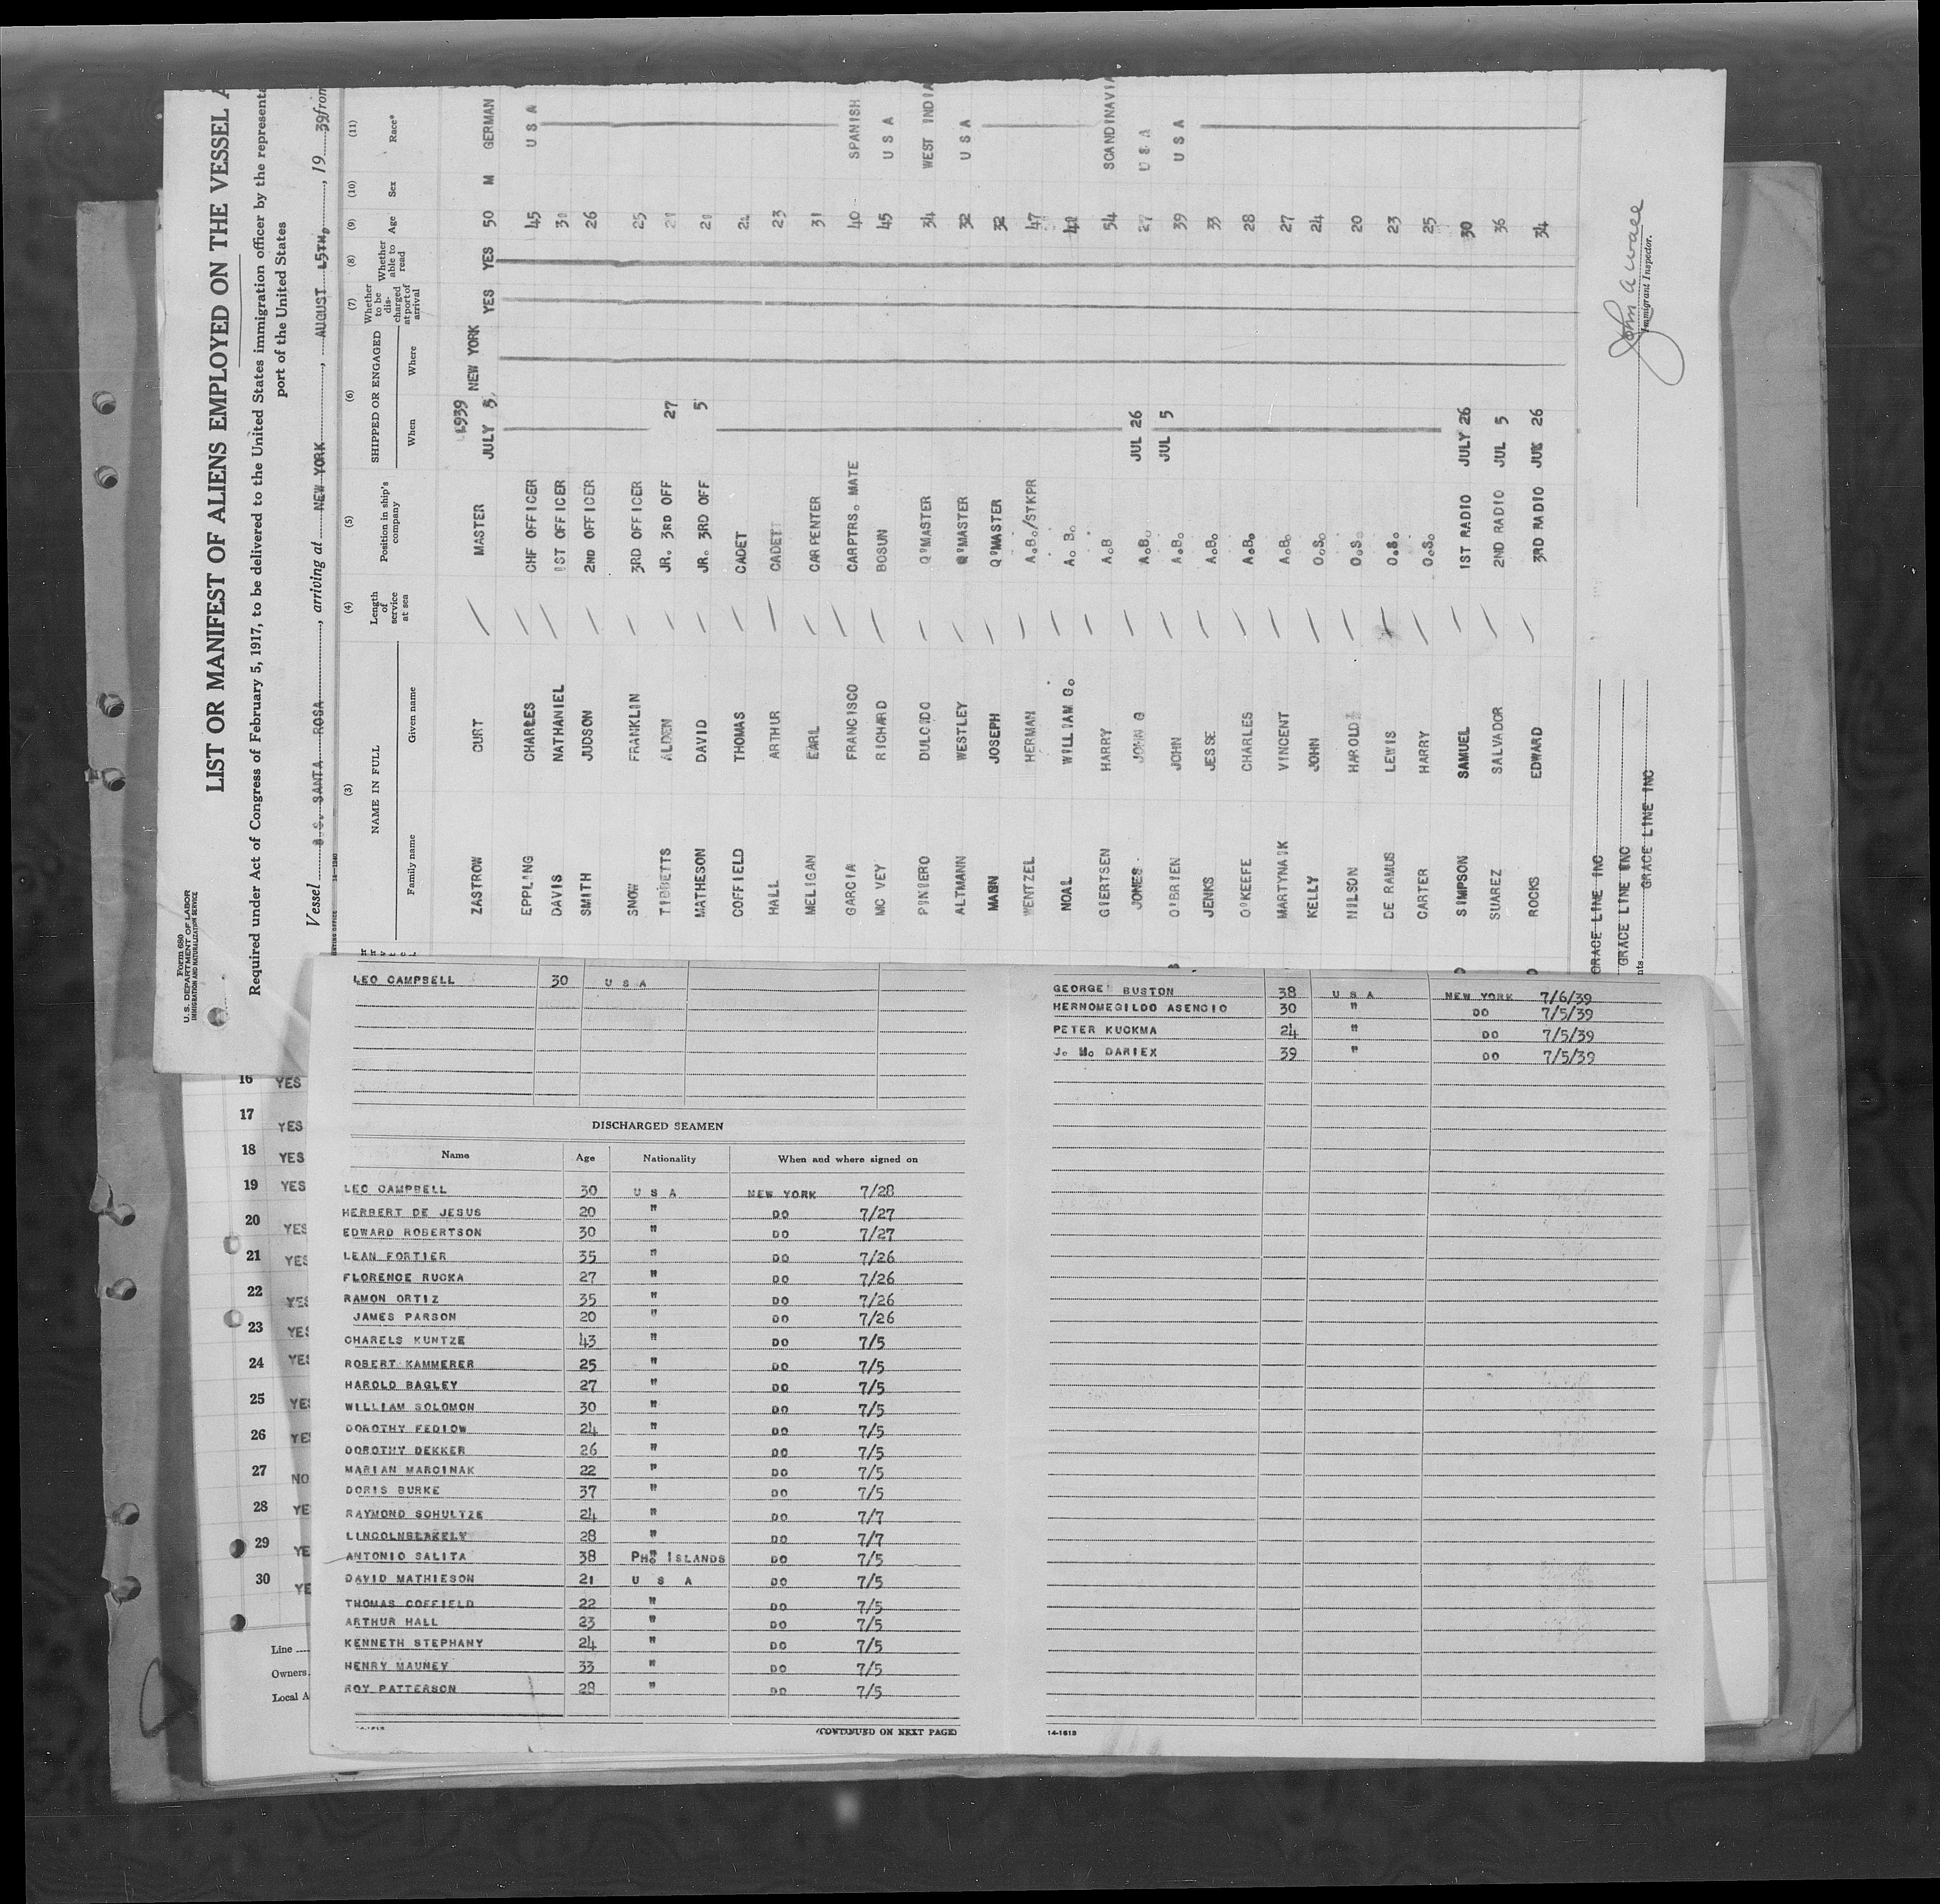 Form 680
U. S. DEPARTMENT OF LABOR
IMMIGRATION AND NATURALIZATION SERVICE
LIST OR MANIFEST OF ALIENS EMPLOYED ON THE VESSEL
Required under Act of Congress of February 5, 1917, to be delivered to the United States immigration officer by the
port of the United States
Vessel S.S. SANTA ROSA, arriving at NEW YORK, AUGUST 15TH, 19 39 from
(3) (4) (5) (6) (7) (8) (9) (10) (11)
NAME IN FULL Length of service at sea Position in ship's company SHIPPED OR ENGAGED Whether to be discharged at port of arrival Whether able to read Age Sex Race*
Family name Given name When Where
1939
ZASTROW CURT MASTER JULY 5, NEW YORK YES YES 50 M GERMAN
EPPLING CHARLES CHF OFFICER 45 U S A
DAVIS NATHANIEL 1ST OFFICER
SMITH JUDSON 2ND OFFICER 26
SNOW FRANKLIN 3RD OFFICER 25
TIBBETTS ALDEN JR. 3RD OFF 27
MATHESON DAVID JR. 3RD OFF 5 21
COFFIELD THOMAS CADET
HALL ARTHUR CADET 23
MELIGAN EARL CARPENTER 31
GARCIA FRANCISCO CARPTRS. MATE 40 SPANISH
MC VEY RICHARD BOSUN 45 U S A
PINIERO DULCIDO Q'MASTER 34 WEST INDIA
ALTMANN WESTLEY Q'MASTER 32 U S A
MANN JOSEPH Q'MASTER 32
WENTZEL HERMAN A.B./STKPR 47
NOAL WILLIAM G. A. B.
GIERTSEN HARRY A.B 54 SCANDINAVIA
JONES JOHN G A.B. JUL 26 27 U S A
O'BRIEN JOHN A.B. JUL 5 39 U S A
JENKS JESSE A.B. 33
O'KEEFE CHARLES A.B. 28
MARTYNAIK VINCENT A.B. 27
KELLY JOHN O.S. 24
NILSON HAROLD O.S. 20
DE RAMUS LEWIS O.S. 23
CARTER HARRY O.S. 25
SIMPSON SAMUEL 1ST RADIO JULY 26 30
SUAREZ SALVADOR 2ND RADIO JUL 5 36
ROCKS EDWARD 3RD RADIO JUL 26 34
GRACE LINE INC
GRACE LINE INC
GRACE LINE INC
John A Wace
Immigrant Inspector.
LEO CAMPBELL 30 U S A
DISCHARGED SEAMEN
Name Age Nationality When and where signed on
LEO CAMPBELL 30 U S A NEW YORK 7/28
HERBERT DE JESUS 20 " DO 7/27
EDWARD ROBERTSON 30 " DO 7/27
LEAN FORTIER 35 " DO 7/26
FLORENCE RUCKA 27 " DO 7/26
RAMON ORTIZ 35 " DO 7/26
JAMES PARSON 20 " DO 7/26
CHARELS KUNTZE 43 " DO 7/5
ROBERT KAMMERER 25 " DO 7/5
HAROLD BAGLEY 27 " DO 7/5
WILLIAM SOLOMON 30 " DO 7/5
DOROTHY FEDIOW 24 " DO 7/5
DOROTHY DEKKER 26 " DO 7/5
MARIAN MARCINAK 22 " DO 7/5
DORIS BURKE 37 " DO 7/5
RAYMOND SCHULTZE 24 " DO 7/7
LINCOLNBLAKELY 28 " DO 7/7
ANTONIO SALITA 38 PH. ISLANDS DO 7/5
DAVID MATHIESON 21 U S A DO 7/5
THOMAS COFFIELD 22 " DO 7/5
ARTHUR HALL 23 " DO 7/5
KENNETH STEPHANY 24 " DO 7/5
HENRY MAUNEY 33 " DO 7/5
ROY PATTERSON 28 " DO 7/5
(CONTINUED ON NEXT PAGE)
GEORGE BUSTON 38 U S A NEW YORK 7/6/39
HERNOMEGILDO ASENCIO 30 " DO 7/5/39
PETER KUCKMA 24 " DO 7/5/39
J. M. DARIEX 39 " DO 7/5/39
14-1613
16 YES
17 YES
18 YES
19 YES
20 YES
21 YES
22 YES
23 YES
24 YES
25 YE
26 YE
27 NO
28 YE
29 YE
30 YE
Line
Owners
Local A